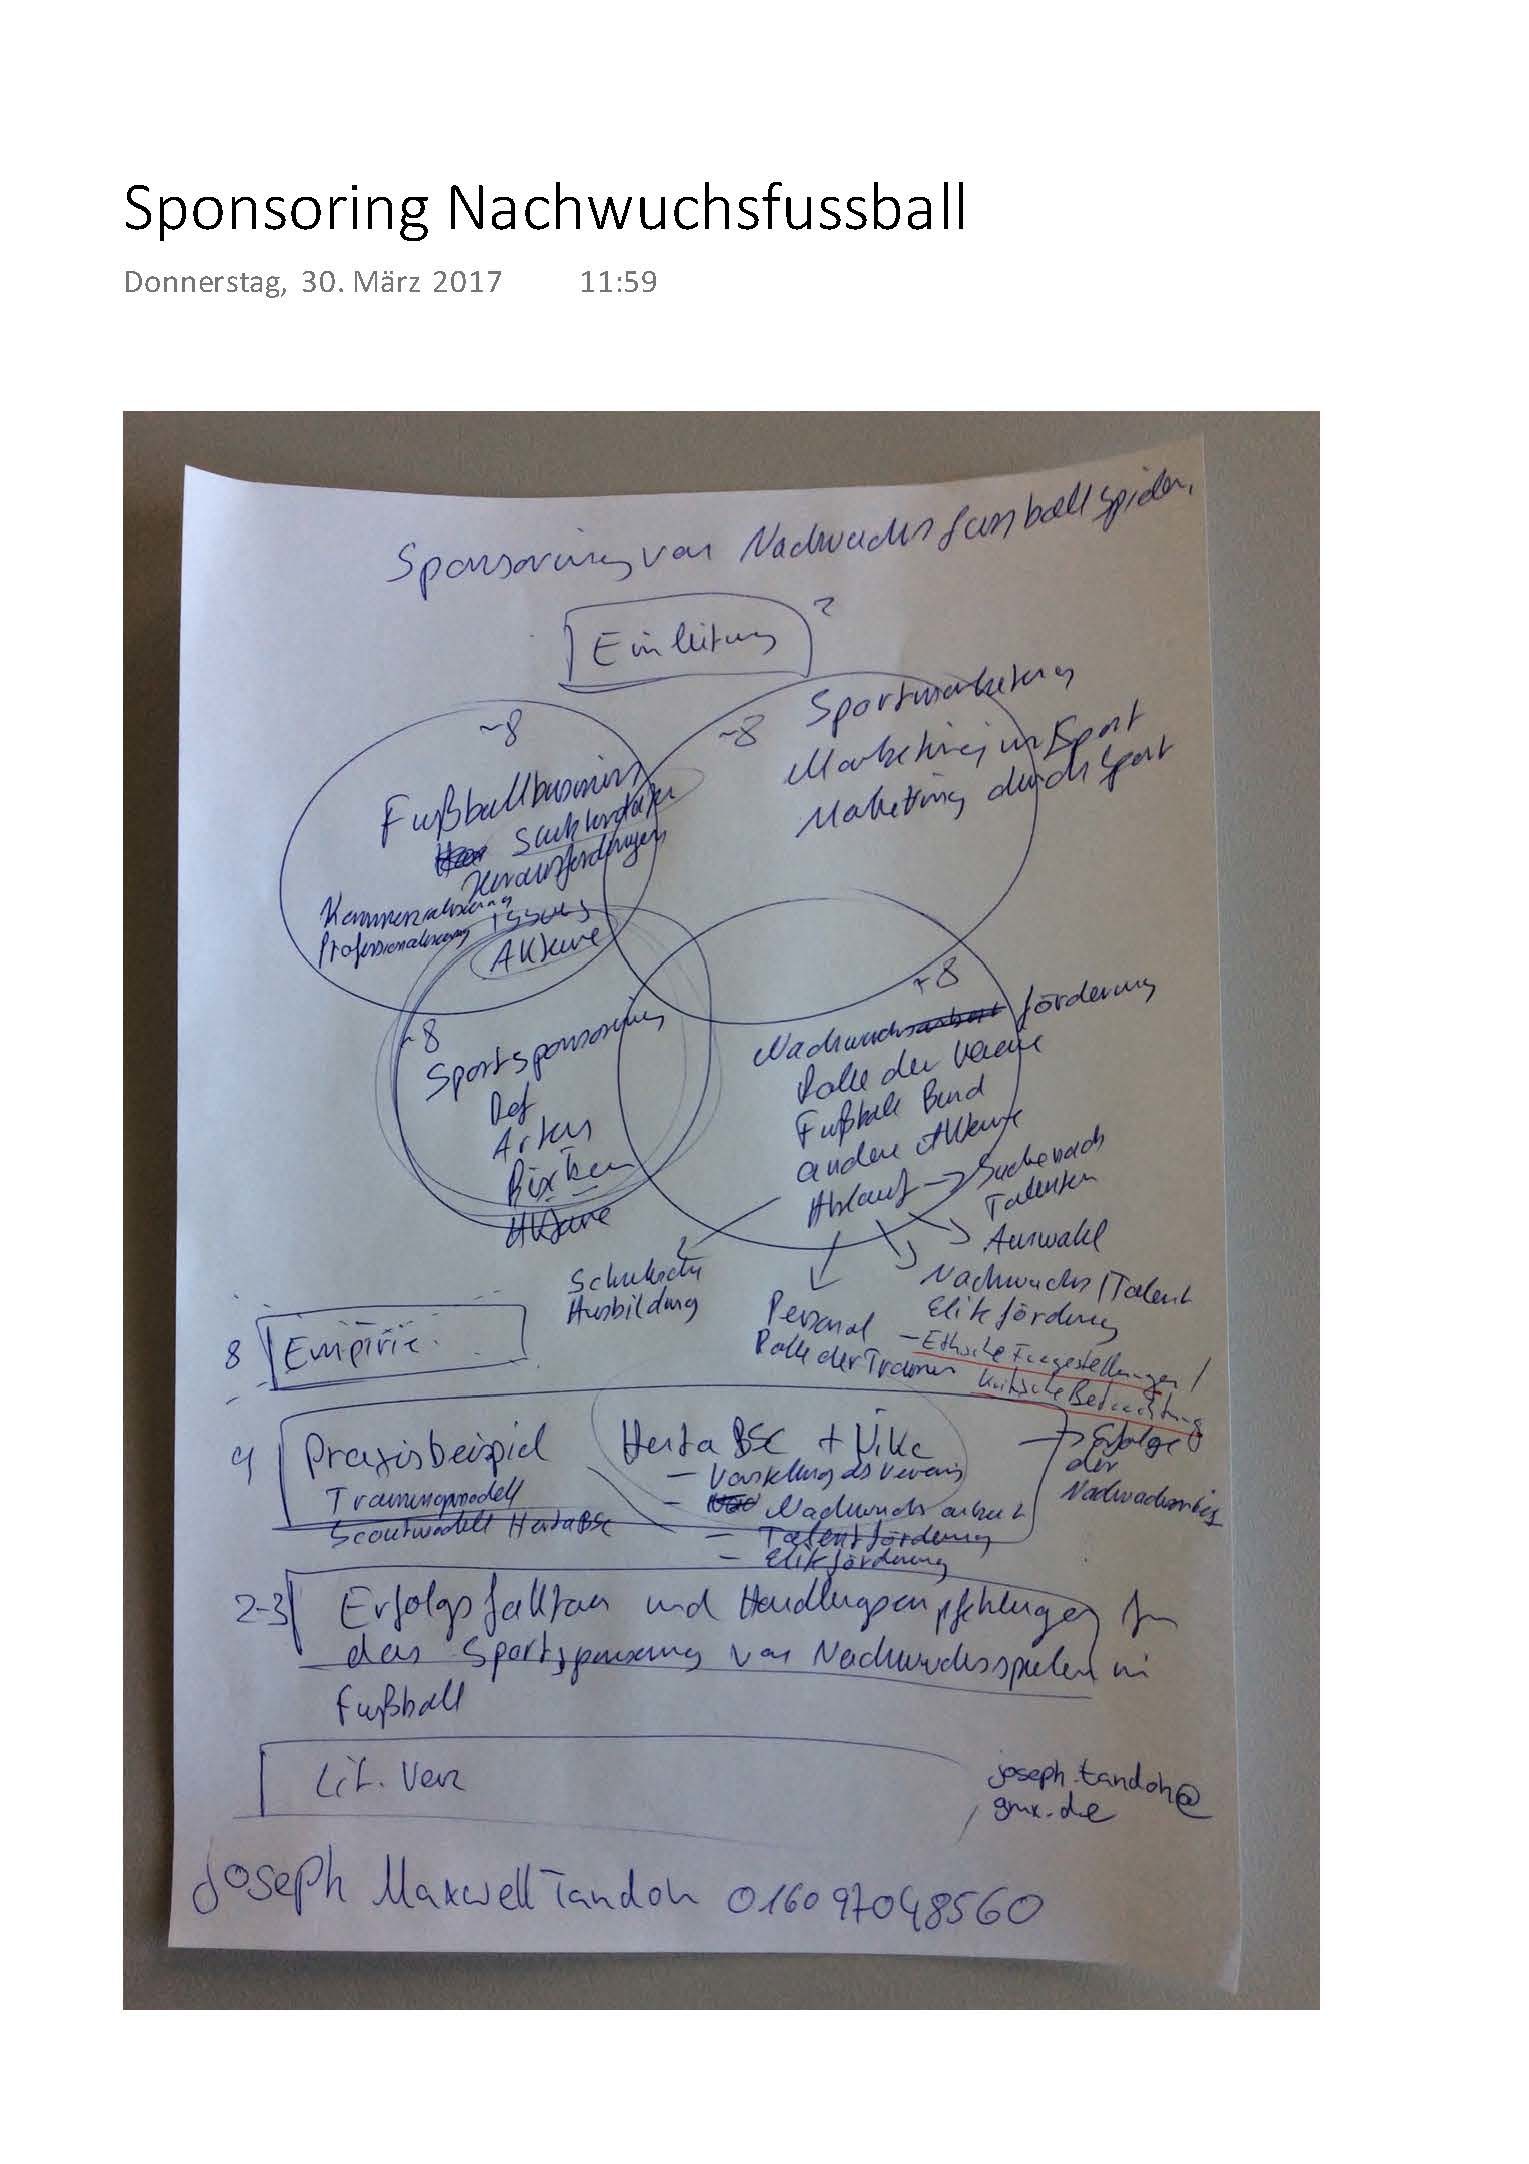 Sponsoring Nachwuchsfussball
Donnerstag, 30. März 2017 11:59
Sponsoring von Nachwuchsfussballspieler,
Einleitung ?
~8
Fußballbusiness
Herausforderungen
Kommerzialisierung
Professionalisierung
Issues
Akteure
~8 Sportmarketing
Marketing im Sport
Marketing durch Sport
~8
Sportsponsoring
Def
Arten
Risiken
Akteure
~8
Nachwuchsarbeit förderung
Rolle der Vereine
Fußball Bund
andere Akteure
Ablauf → Suche nach
Talenten
Auswahl
Nachwuchs / Talent
Elite förderung
- Ethische Fragestellungen /
kritische Betrachtung
Schulische
Ausbildung
Personal
Rolle der Trainer
8 Empirie
4 Praxisbeispiel Herta BSC + Nike
Trainingsmodell
Scoutmodell Herta BSC
- Vorstellung des Vereins
- Nachwuchsarbeit
- Talentförderung
- Eliteförderung
→ Erfolge
der
Nachwuchsarbeit
2-3 Erfolgsfaktoren und Handlungsempfehlungen für
das Sportsponsoring von Nachwuchsspielern im
Fußball
Lit. Verz
joseph.tandoh@
gmx.de
Joseph Maxwell Tandoh 016097048560